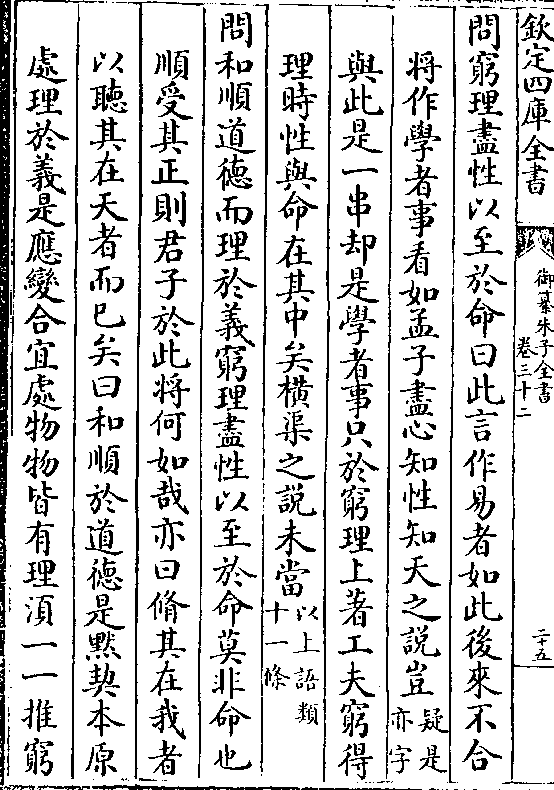 欽定四庫全書
御纂朱子全書
卷三十二
二十五
問窮理盡性以至於命曰此言作易者如此後來不合
將作學者事看如孟子盡心知性知天之說豈疑是亦字
與此是一串却是學者事只於窮理上著工夫窮得
理時性與命在其中矣横渠之說未當以上語類十一條
問和順道德而理於義窮理盡性以至於命莫非命也
順受其正則君子於此將何如哉亦曰脩其在我者
以聽其在天者而已矣曰和順於道德是黙契本原
處理於義是應變合宜處物物皆有理須一一推窮